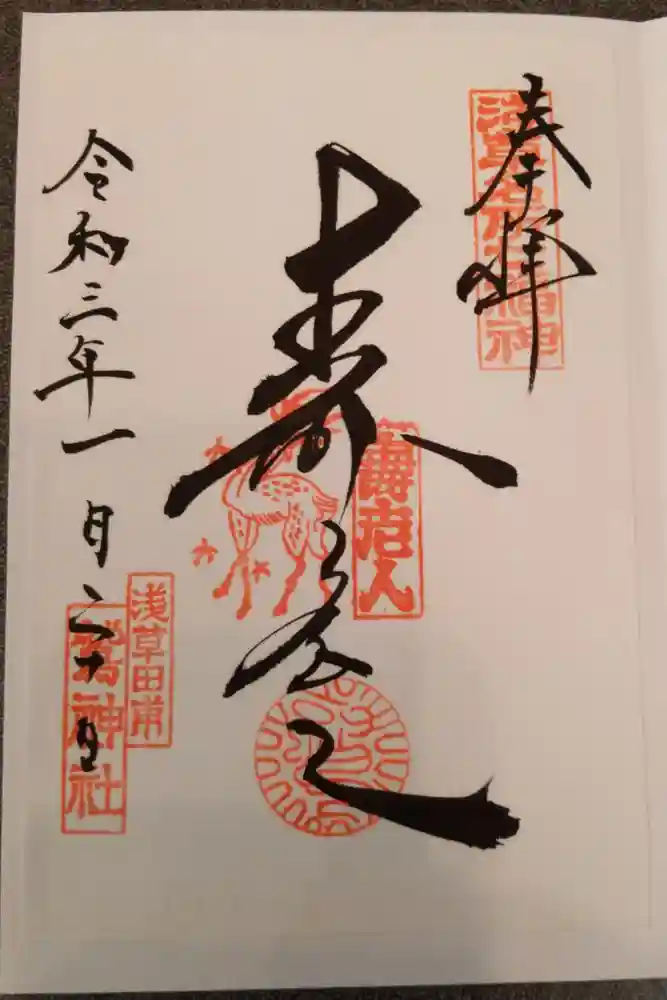 奉拝
浅草名所七福神
寿老人
壽老人
令和三年一月二十日
浅草田甫
鷲神社